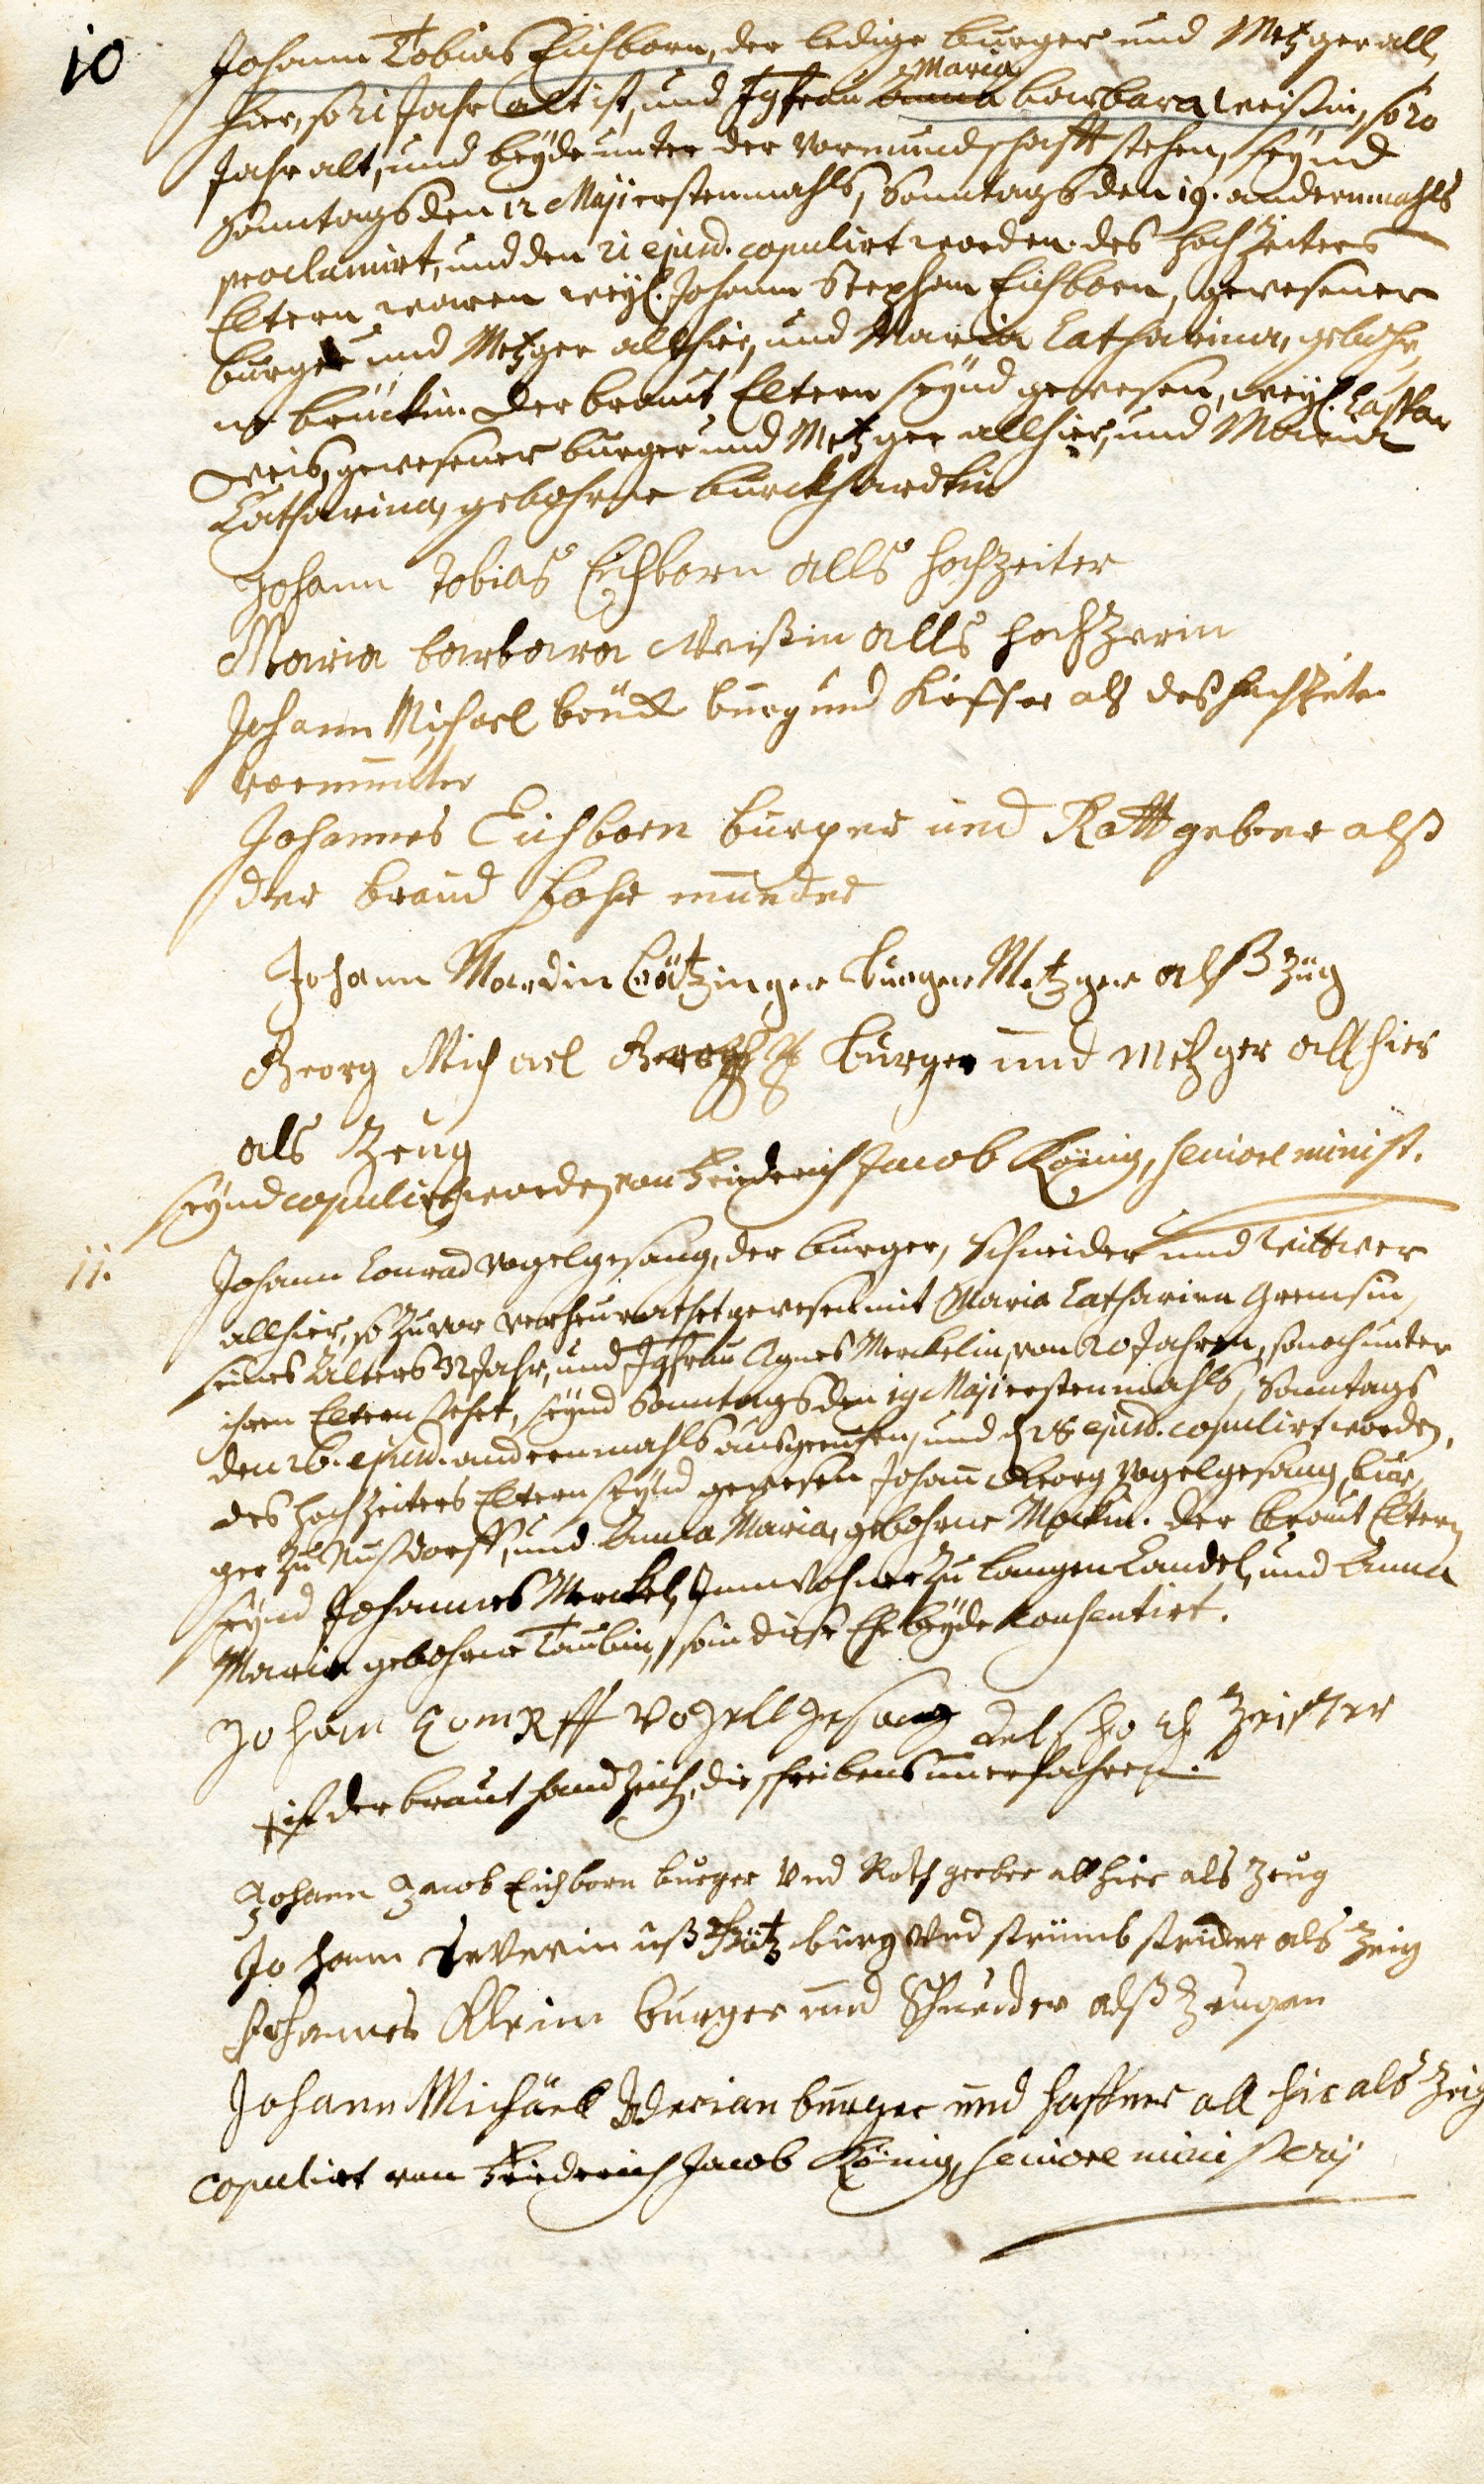 10
Johann Tobias Eichborn, der ledige burger und Metzger all,
hier, so 21 Jahr alt ist, und Jgfrau Maria barbara Weißin, so 20
Jahr alt, und beÿde unter der Vormundschafft stehen, seÿnd
Sonntags den 12 Maji erstenmahls, Sonntags den 19. andernmahls
proclamirt, und den 21 ejusd. copulirt worden. des hochzeiters
Eltern waren weÿl. Johann Stephan Eichborn, gewesener
burger und Metzger allhier, und Maria Catharina, gebohr,
ne brückin. Der braut Eltern seÿnd gewesen, weÿl. Caspar
Weis, gewesener burger und Metzger allhier, und Maria
Catharina, gebohrne burckhardtin
Johann Tobias Eichborn alls hochzeiter
Maria barbara Weißin alls hochzerin
Johann Michael burg und Kieffer als deß hochzeiter
vormunter
Johannes Eichborn burger und Rottgerber alß
der braud fohr munder
Johann Mardin burger Metzger alß Züg
Georg Michael burger und metzger allhier
als Zeug
seÿnd copulirt worden von Friederich Jacob König, seniore minist.
11.
Johann Conrad Vogelgesang, der burger, Schneider und Wittwer
allhier, so zuvor verheurathet gewesen mit Maria Catharina Gremsin,
seines Alters 32 Jahr, und Jgfrau Agnes Merckelin, von 20 Jahren, so noch unter
ihren Eltern stehet, seÿnd Sonntags den 19 Maji erstenmahls, Sonntags
den 26. ejusd. andernmahls ausgeruffen, und d. 28 ejusd. copulirt worden.
des hochzeiters Eltern seÿnd gewesen Johann Georg Vogelgesang, bur,
ger zu Nußdorff, und Anna Maria, gebohrne Mockin. Der braut Eltern
seÿnd Johannes Merckel, Innwohner zu Langen Candel, und Anna
Maria gebohrne Taubin, so in diese Ehe beÿde konsentirt.
Johann Vogellgesang als hoch Zeitter
+ ist der braut handzeich, die schreibens unerfahren.
Johann Jacob Eichborn burger Und Rothgerber allhier als Zeug
Johann Severinuß burg Und strümbstricker als Zeig
Johannes Klein burger und Schneider alß Zeugen
Johann Michäel Merian burger und haffner all hir als Zeig
copulirt von Friederich Jacob König, seniore ministerij